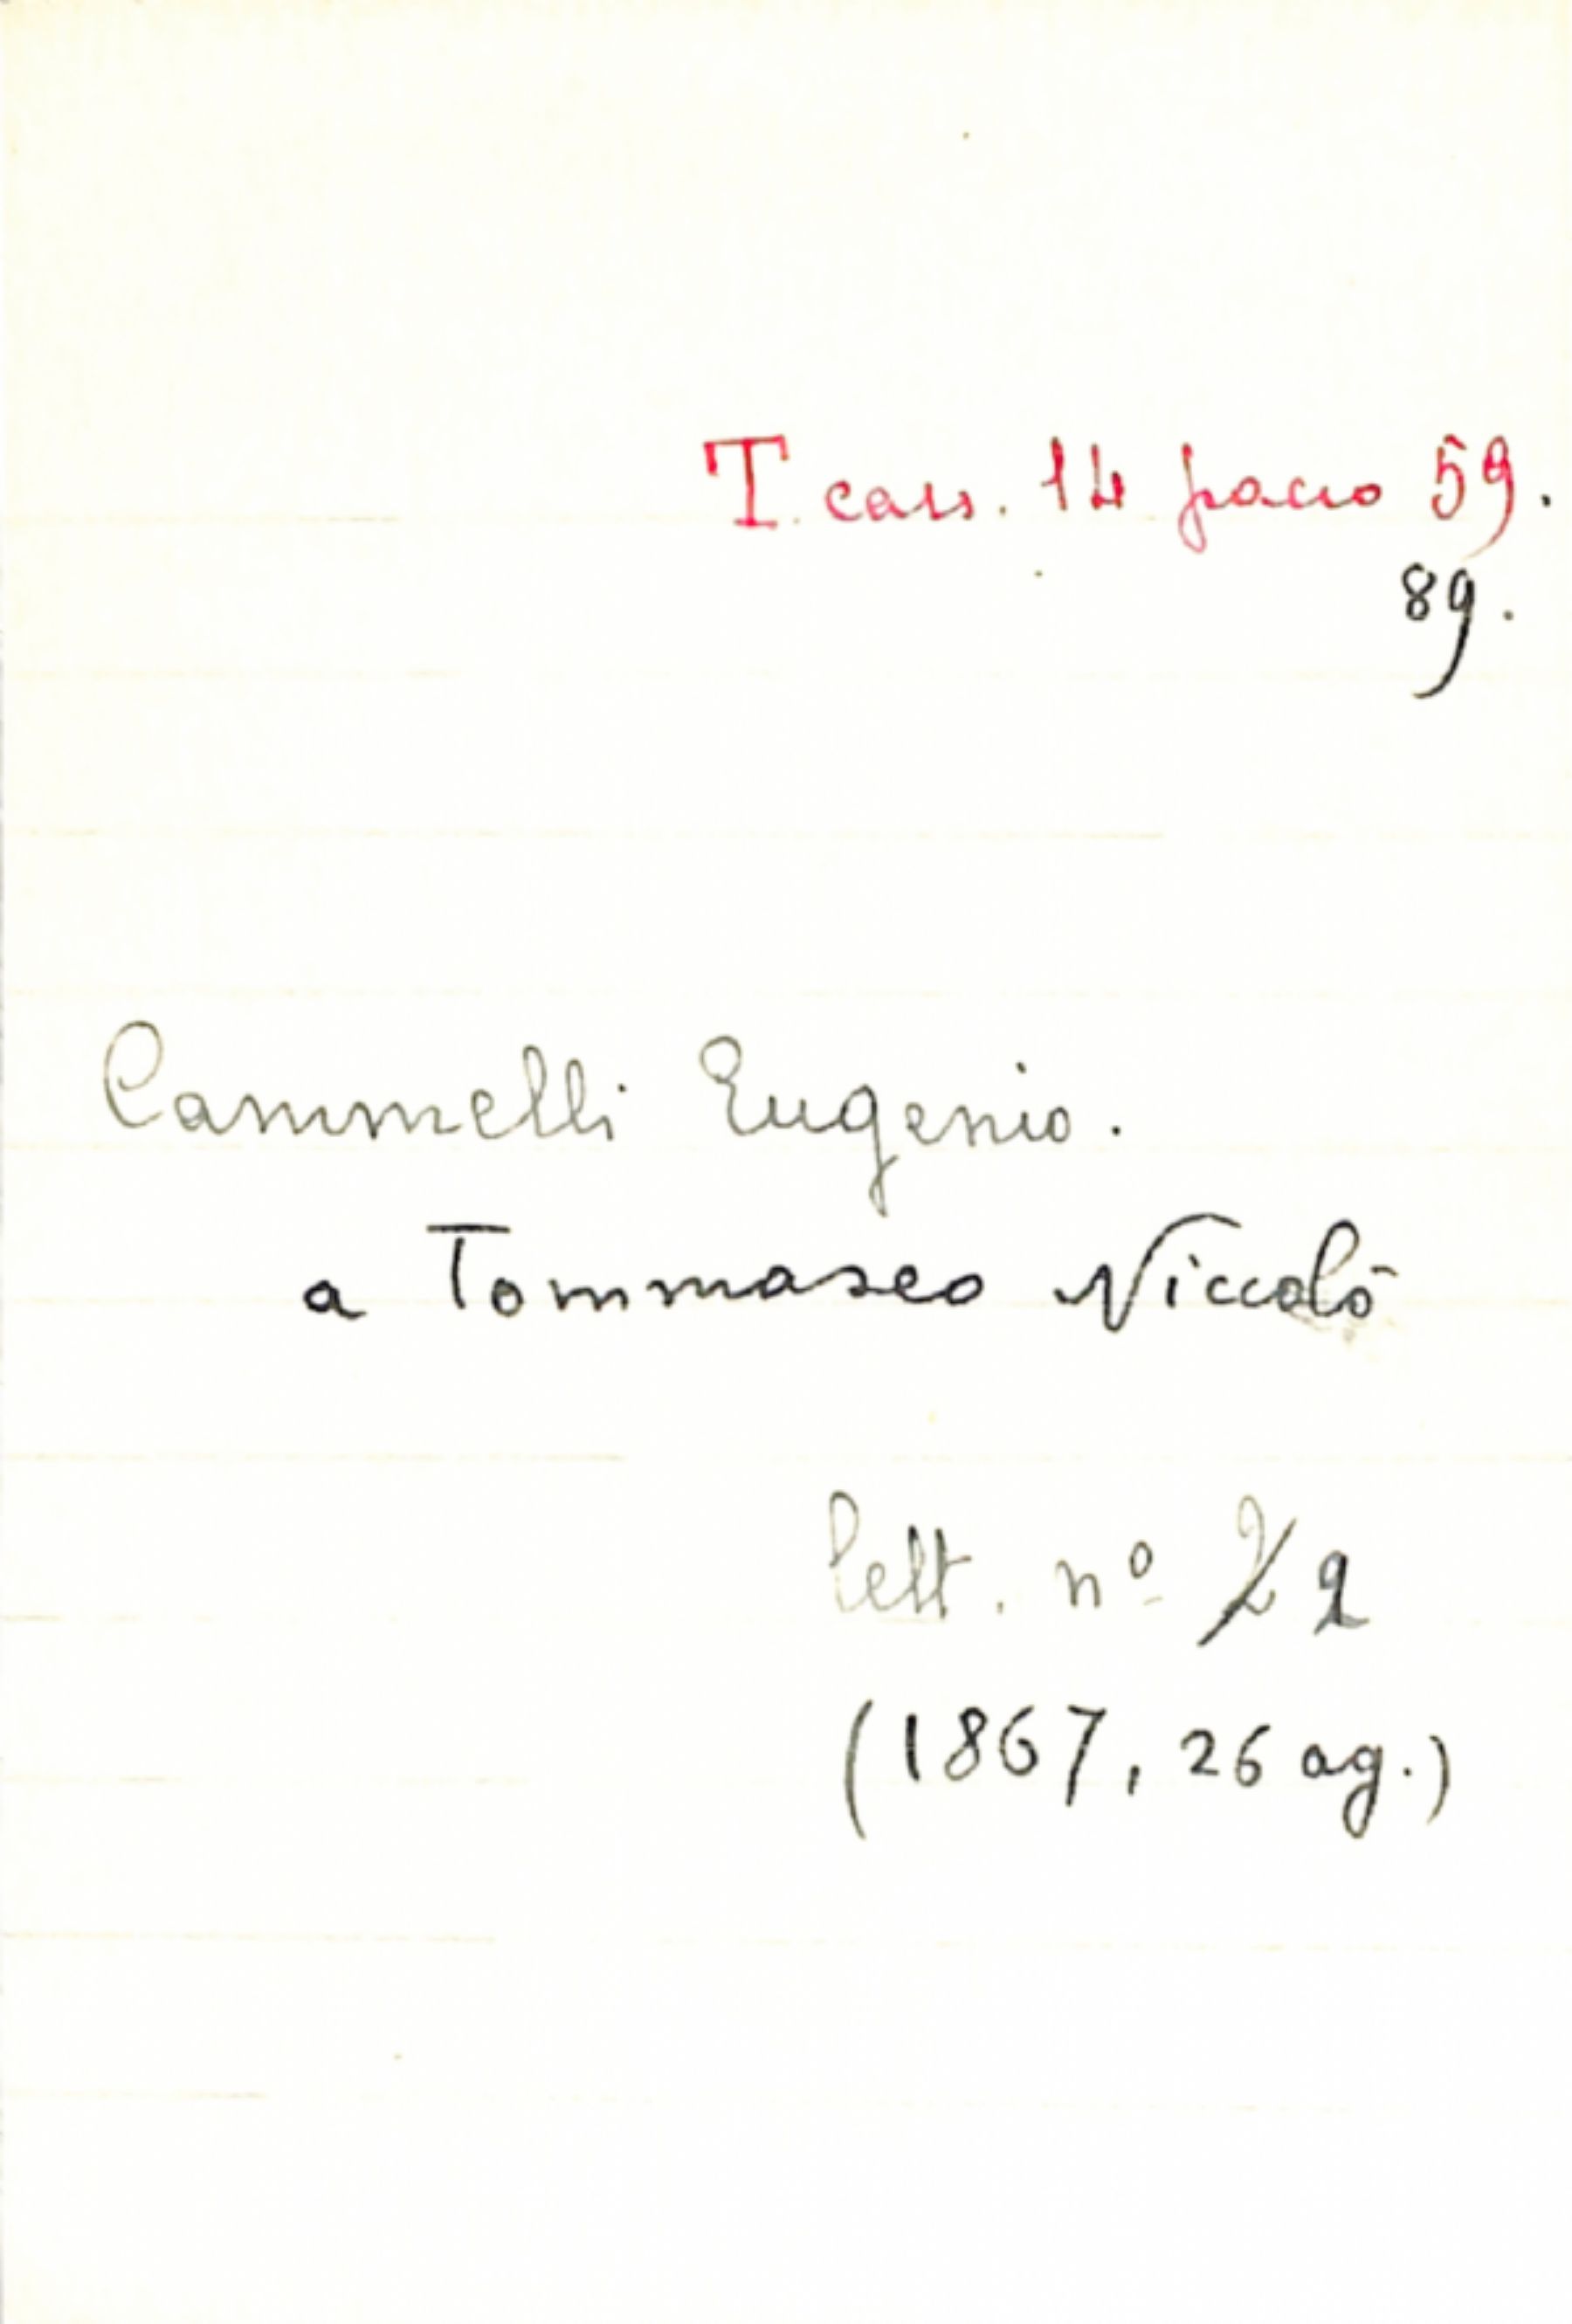 T. cass. 14 pacco 59.
89.
Cammelli Eugenio.
a Tommaseo Niccolò
lett. nº 2
(1867, 26 ag.)